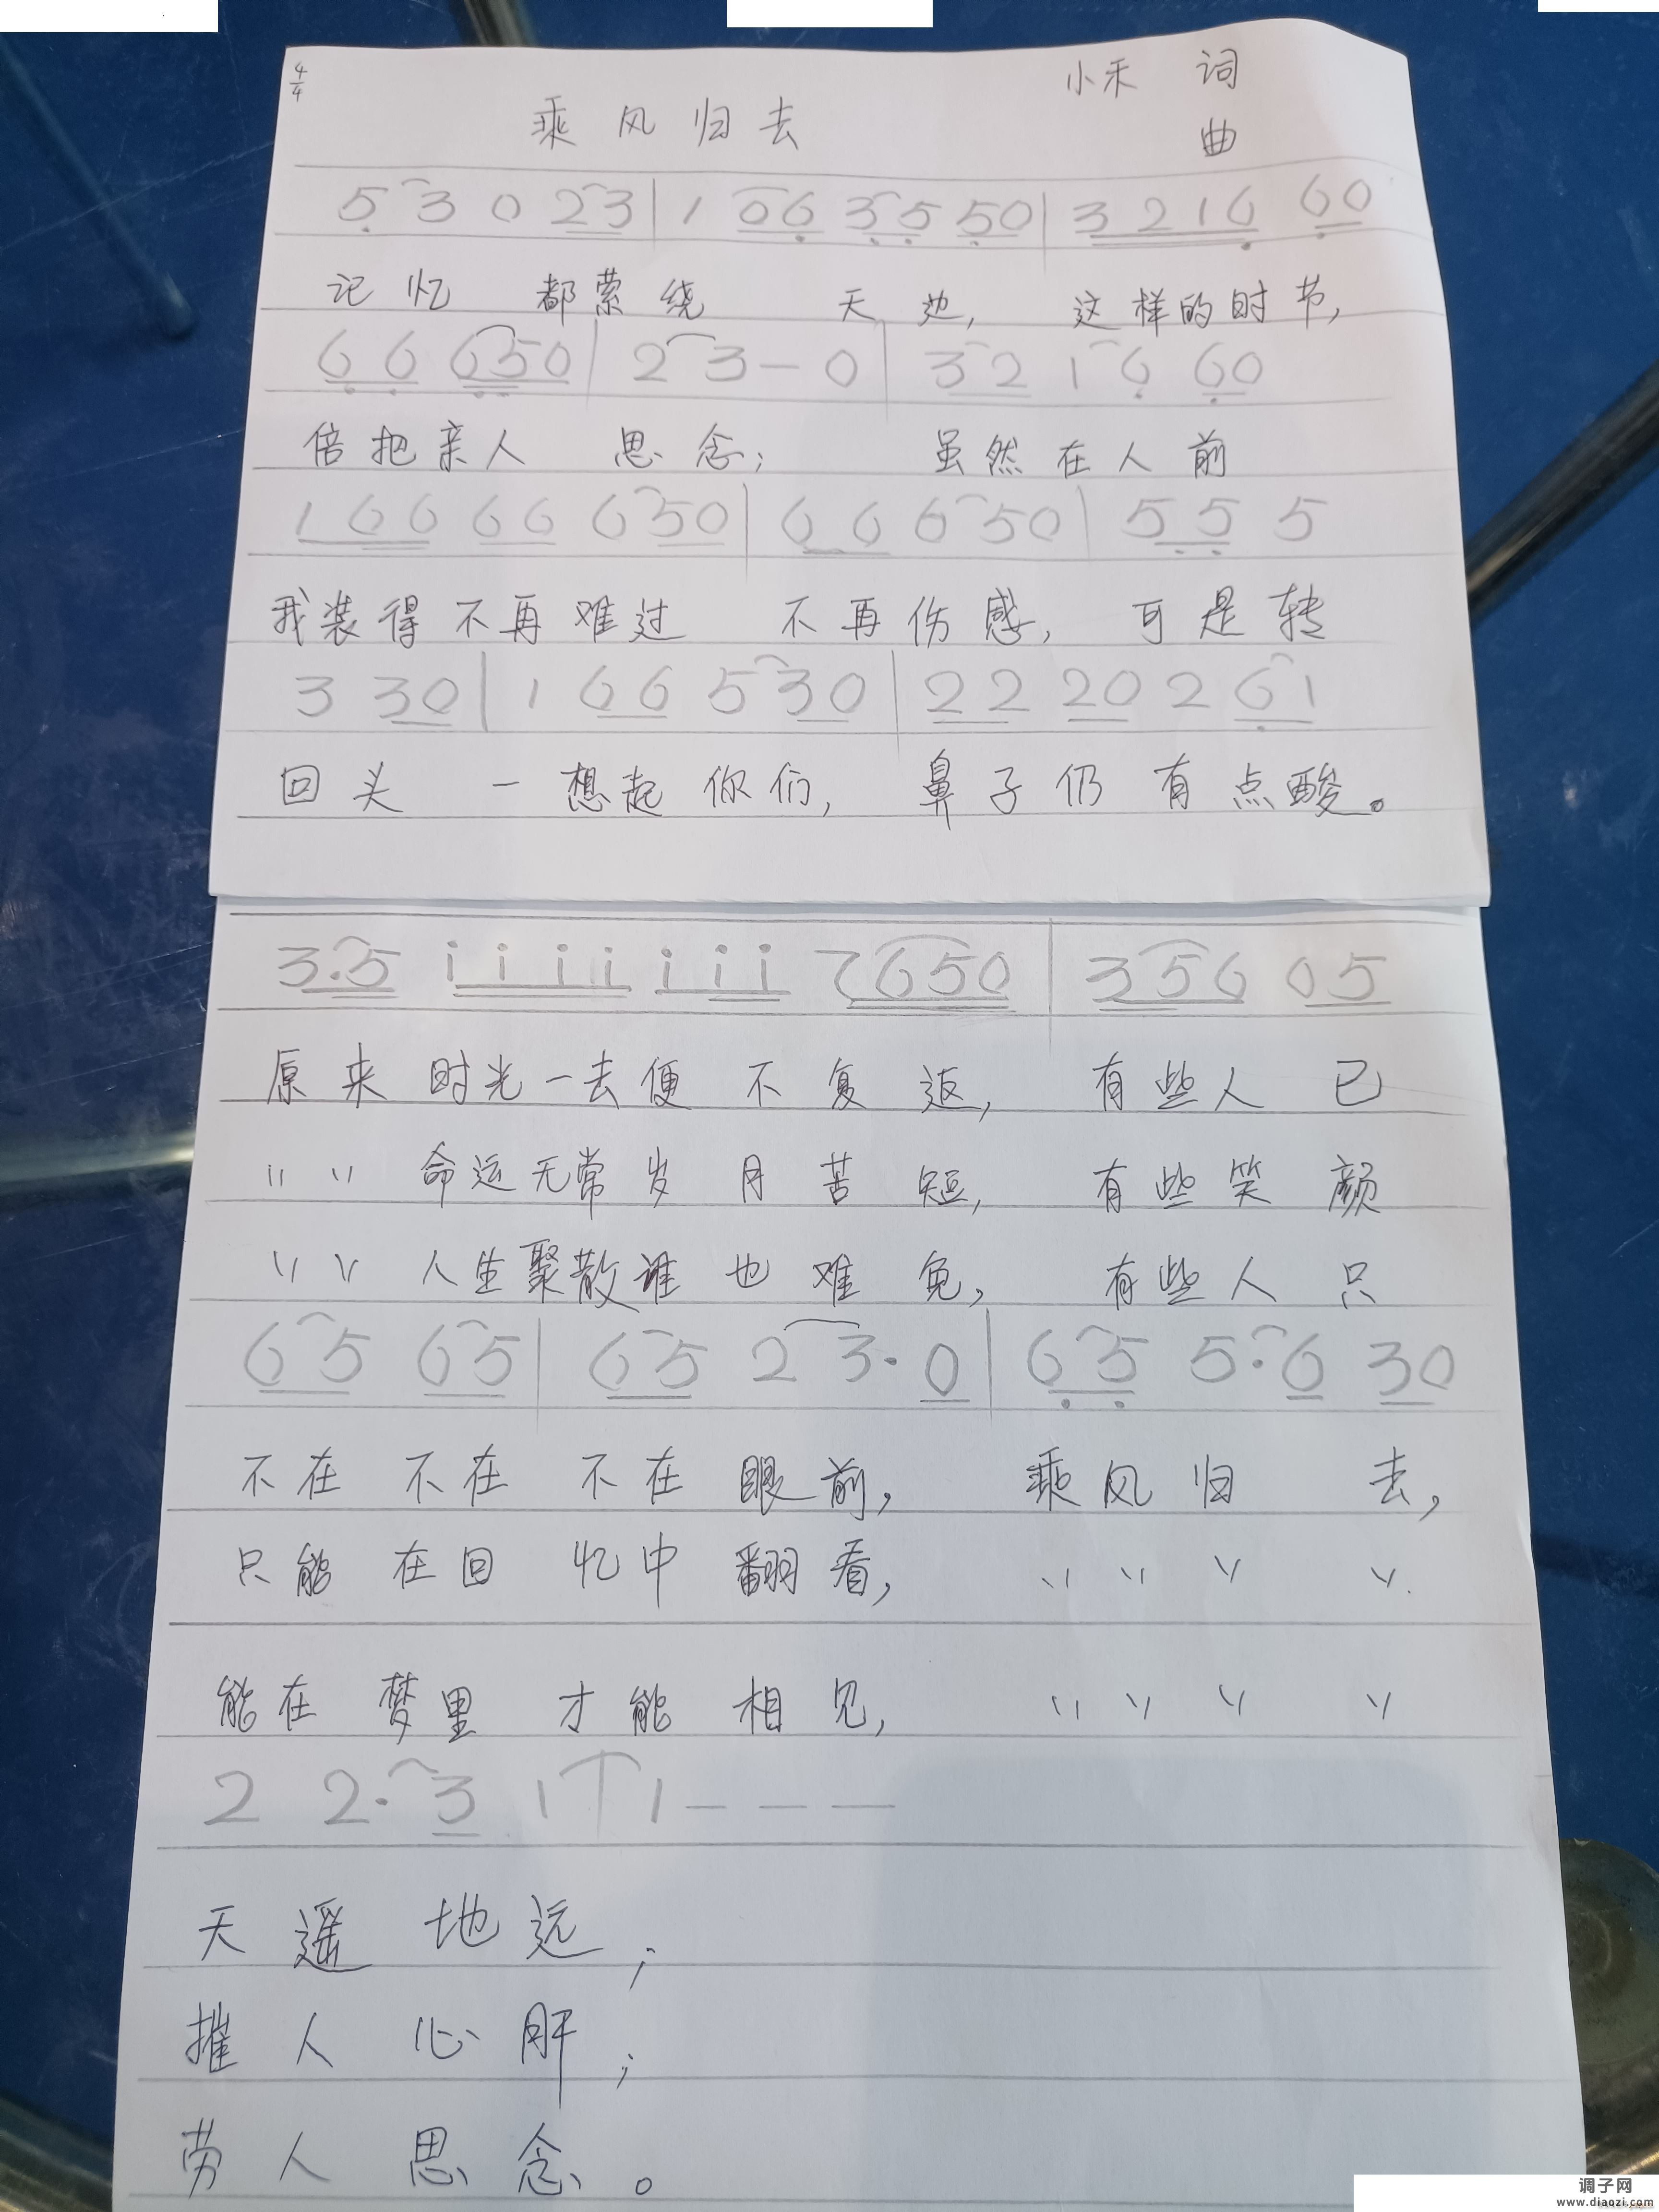 4/4
小禾 词
乘风归去
曲
5 3 0 2 3 | 1 0 6 3 5 5 0 | 3 2 1 6 6 0
记忆 都萦绕 天边, 这样的时节,
6 6 6 5 0 | 2 3 — 0 | 3 2 1 6 6 0
倍把亲人 思念; 虽然在人前
1 6 6 6 6 6 5 0 | 6 6 6 5 0 | 5 5 5
我装得不再难过 不再伤感, 可是转
3 3 0 | 1 6 6 5 3 0 | 2 2 2 0 2 6 1
回头 一想起你们, 鼻子仍有点酸。
3 . 5 i i i i i i i 7 6 5 0 | 3 5 6 0 5
原来时光一去便不复返, 有些人已
〃 〃 命运无常岁月苦短, 有些笑颜
〃 〃 人生聚散谁也难免, 有些人只
6 5 6 5 | 6 5 2 3 . 0 | 6 5 5 . 6 3 0
不在不在不在眼前, 乘风归去,
只能在回忆中翻看, 〃 〃 〃 〃
能在梦里才能相见, 〃 〃 〃 〃
2 2 . 3 1 | 1 — — —
天遥地远;
摧人心肝;
劳人思念。
调子网
www.diaozi.com